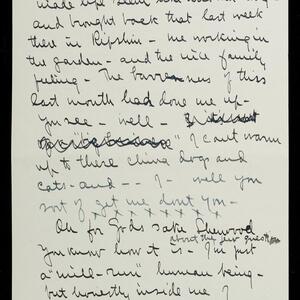 and brought back that last week
there in Ripshin - me working in
the garden - and the nice family
feeling - The barrenness of this
last month had done me up -
You see - well -
I can't warm
up to these china dogs and
cats - and - - I - well you
sort of get me dont you -
x x x x x x x x
Oh for Gods sake Sherwood
about the jew question
You know how it is - I'm just
a "mill-run" human being -
but honestly inside me I